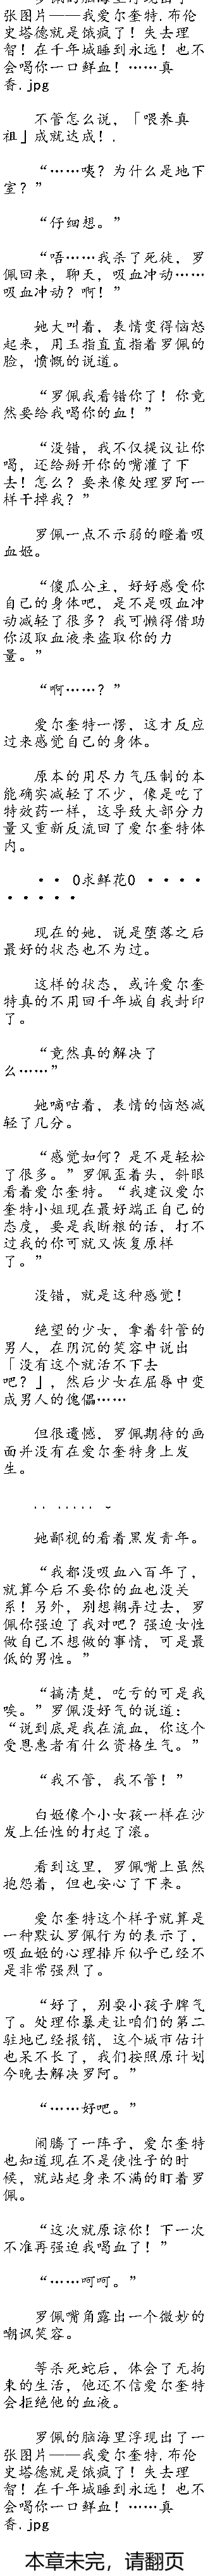 罗佩的脑海里浮现出了一
张图片——我爱尔奎特.布伦
史塔德就是饿疯了！失去理
智！在千年城睡到永远！也不
会喝你一口鲜血！……真
香.jpg
不管怎么说，「喂养真
祖」成就达成！.
“……咦？为什么是地下
室？”
“仔细想。”
“唔……我杀了死徒，罗
佩回来，聊天，吸血冲动……
吸血冲动？啊！”
她大叫着，表情变得恼怒
起来，用玉指直直指着罗佩的
脸，愤慨的说道。
“罗佩我看错你了！你竟
然要给我喝你的血！”
“没错，我不仅提议让你
喝，还给掰开你的嘴灌了下
去！怎么？要来像处理罗阿一
样干掉我？”
罗佩一点不示弱的瞪着吸
血姬。
“傻瓜公主，好好感受你
自己的身体吧，是不是吸血冲
动减轻了很多？我可懒得借助
你汲取血液来盗取你的力
量。”
“啊……？”
爱尔奎特一愣，这才反应
过来感觉自己的身体。
原本的用尽力气压制的本
能确实减轻了不少，像是吃了
特效药一样，这导致大部分力
量又重新反流回了爱尔奎特体
内。
·· 0求鲜花0 ····
·····
现在的她，说是堕落之后
最好的状态也不为过。
这样的状态，或许爱尔奎
特真的不用回千年城自我封印
了。
“竟然真的解决了
么……”
她嘀咕着，表情的恼怒减
轻了几分。
“感觉如何？是不是轻松
了很多。”罗佩歪着头，斜眼
看着爱尔奎特。“我建议爱尔
奎特小姐现在最好端正自己的
态度，要是我断粮的话，打不
过我的你可就又恢复原样
了。”
没错，就是这种感觉！
绝望的少女，拿着针管的
男人，在阴沉的笑容中说出
「没有这个就活不下去
吧？」，然后少女在屈辱中变
成男人的傀儡……
但很遗憾，罗佩期待的画
面并没有在爱尔奎特身上发
生。
.. ..... ..
她鄙视的看着黑发青年。
“我都没吸血八百年了，
就算今后不要你的血也没关
系！另外，别想糊弄过去，罗
佩你强迫了我对吧？强迫女性
做自己不想做的事情，可是最
低的男性。”
“搞清楚，吃亏的可是我
唉。”罗佩没好气的说道：
“说到底是我在流血，你这个
受恩惠者有什么资格生气。”
“我不管，我不管！”
白姬像个小女孩一样在沙
发上任性的打起了滚。
看到这里，罗佩嘴上虽然
抱怨着，但也安心了下来。
爱尔奎特这个样子就算是
一种默认罗佩行为的表示了，
吸血姬的心理排斥似乎已经不
是非常强烈了。
“好了，别耍小孩子脾气
了。处理你暴走让咱们的第二
驻地已经报销，这个城市估计
也呆不长了，我们按照原计划
今晚去解决罗阿。”
“……好吧。”
闹腾了一阵子，爱尔奎特
也知道现在不是使性子的时
候，就站起身来不满的盯着罗
佩。
“这次就原谅你！下一次
不准再强迫我喝血了！”
“……呵呵。”
罗佩嘴角露出一个微妙的
嘲讽笑容。
等杀死蛇后，体会了无拘
束的生活，他还不信爱尔奎特
会拒绝他的血液。
罗佩的脑海里浮现出了一
张图片——我爱尔奎特.布伦
史塔德就是饿疯了！失去理
智！在千年城睡到永远！也不
会喝你一口鲜血！……真
香.jpg
本章未完，请翻页